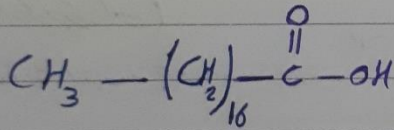 O
||
CH₃ — (CH₂)₁₆ — C — OH